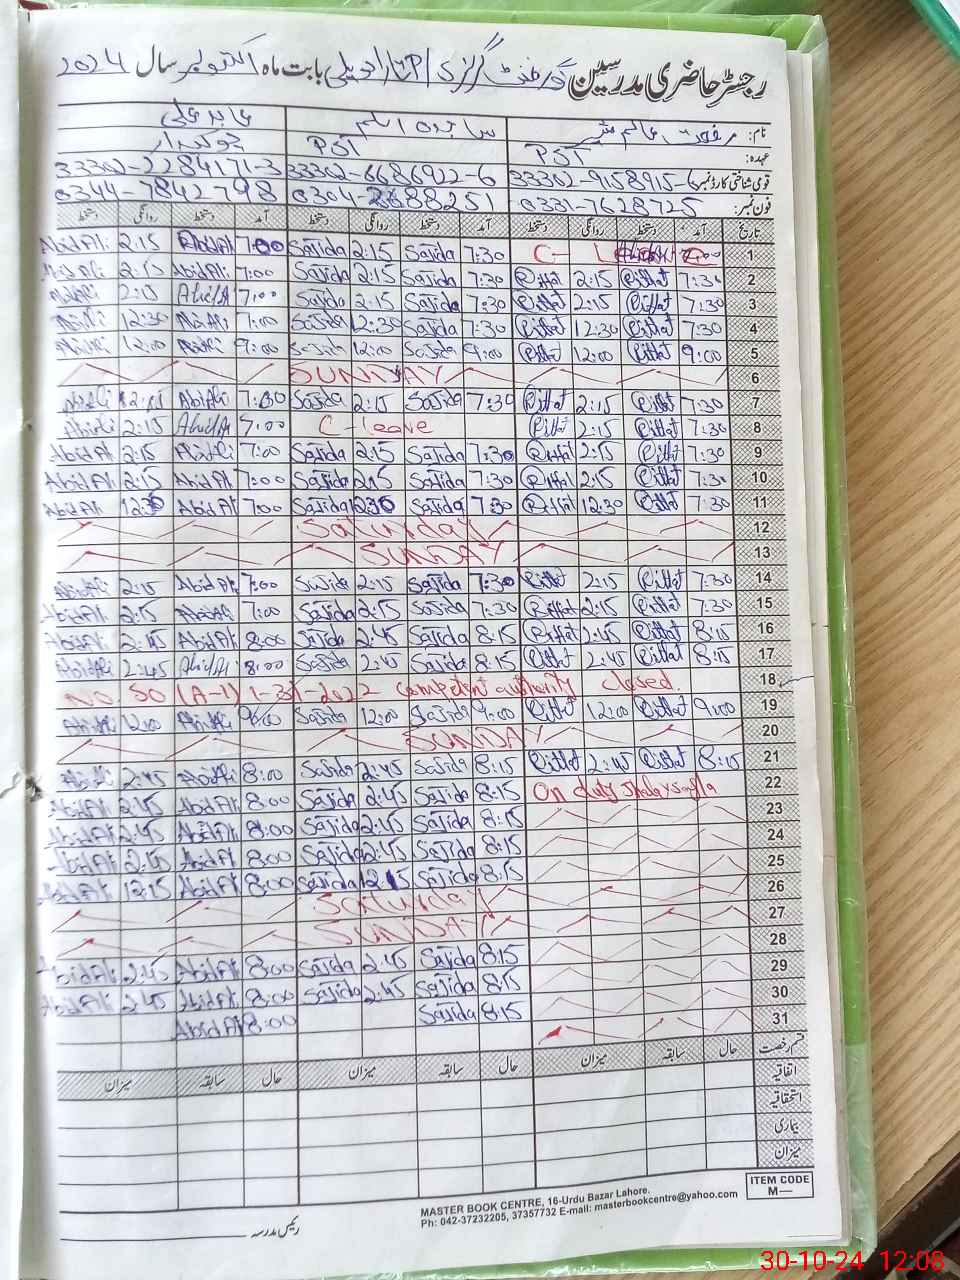 رجسٹر حاضری مدرسین گورنمنٹ گرلز بابت ماہ اکتوبر سال 2024
نام: رفعت عالم ساجدہ اسلم عابد علی
عہدہ: PST PST چوکیدار
قومی شناختی کارڈ نمبر 33302-9158915-6 33302-6686922-6 33302-2284171-3
فون نمبر: 0331-7628725 0344-7842798
تاریخ آمد دستخط روانگی دستخط آمد دستخط روانگی دستخط آمد دستخط روانگی دستخط
Abid Ali 2:15 Abid Ali 7:00 Sajida 2:15 Sajida 7:30 C- L 1
Abid Ali 2:15 Abid Ali 7:00 Sajida 2:15 Sajida 7:30 Riffat 2:15 Riffat 7:30 2
Abid Ali 2:15 Abid Ali 7:00 Sajida 2:15 Sajida 7:30 Riffat 2:15 Riffat 7:30 3
Abid Ali 12:30 Abid Ali 7:00 Sajida 12:30 Sajida 7:30 Riffat 12:30 Riffat 7:30 4
Abid Ali 12:00 Abid Ali 9:00 Sajida 12:00 Sajida 9:00 Riffat 12:00 Riffat 9:00 5
SUNDAY 6
Abid Ali 2:15 Abid Ali 7:00 Sajida 2:15 Sajida 7:30 Riffat 2:15 Riffat 7:30 7
Abid Ali 2:15 Abid Ali 7:00 C-leave Riffat 2:15 Riffat 7:30 8
Abid Ali 2:15 Abid Ali 7:00 Sajida 2:15 Sajida 7:30 Riffat 2:15 Riffat 7:30 9
Abid Ali 2:15 Abid Ali 7:00 Sajida 2:15 Sajida 7:30 Riffat 2:15 Riffat 7:30 10
Abid Ali 12:30 Abid Ali 7:00 Sajida 12:30 Sajida 7:30 Riffat 12:30 Riffat 7:30 11
Saturday 12
SUNDAY 13
Abid Ali 2:15 Abid Ali 7:00 Sajida 2:15 Sajida 7:30 Riffat 2:15 Riffat 7:30 14
Abid Ali 2:15 Abid Ali 7:00 Sajida 2:15 Sajida 7:30 Riffat 2:15 Riffat 7:30 15
Abid Ali 2:45 Abid Ali 8:00 Sajida 2:45 Sajida 8:15 Riffat 2:45 Riffat 8:15 16
Abid Ali 2:45 Abid Ali 8:00 Sajida 2:45 Sajida 8:15 Riffat 2:45 Riffat 8:15 17
NO. SO (A-1) 1-31-2022 competent authority closed. 18
Abid Ali 12:00 Abid Ali 9:00 Sajida 12:00 Sajida 9:00 Riffat 12:00 Riffat 9:00 19
SUNDAY 20
Abid Ali 2:45 Abid Ali 8:00 Sajida 2:45 Sajida 8:15 Riffat 2:45 Riffat 8:15 21
Abid Ali 2:45 Abid Ali 8:00 Sajida 2:45 Sajida 8:15 On duty 22
Abid Ali 2:45 Abid Ali 8:00 Sajida 2:45 Sajida 8:15 23
Abid Ali 2:45 Abid Ali 8:00 Sajida 2:45 Sajida 8:15 24
Abid Ali 12:15 Abid Ali 8:00 Sajida 12:15 Sajida 8:15 25
Saturday 26
SUNDAY 27
Abid Ali 2:45 Abid Ali 8:00 Sajida 2:45 Sajida 8:15 28
Abid Ali 2:45 Abid Ali 8:00 Sajida 2:45 Sajida 8:15 29
Abid Ali 8:00 Sajida 8:15 30
31
قسم رخصت حال سابقہ میزان حال سابقہ میزان حال سابقہ میزان
اتفاقیہ
استحقاقیہ
بیماری
میزان
ITEM CODE
M—
MASTER BOOK CENTRE, 16-Urdu Bazar Lahore.
Ph: 042-37232205, 37357732 E-mail: masterbookcentre@yahoo.com
رئیس مدرسہ
30-10-24 12:08